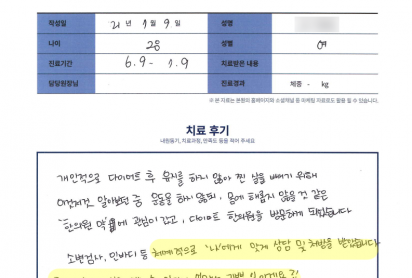 작성일 21년 1월 9일 성명
나이 20중 성별 여
진료기간 6.9 - 1.9 치료받은 내용
담당원장님 진료경과 체중 - kg
※ 본 자료는 본원의 홈페이지와 소셜채널 등 마케팅 자료로도 활용 될 수 있습니다.
치료 후기
내원동기, 치료과정, 만족도 등을 적어 주세요
개인적으로 다이어트 후 유지를 하지 않아 찐 살을 빼기 위해
이것저것 알아보던 중 운동을 하지 않고, 몸에 해롭지 않을 것 같은
"한의원 약"에 관심이 갔고, 다이어트 한의원을 방문하게 되었습니다
소변검사, 인바디 등 체계적으로 '나'에게 맞게 상담 및 처방을 받았습니다